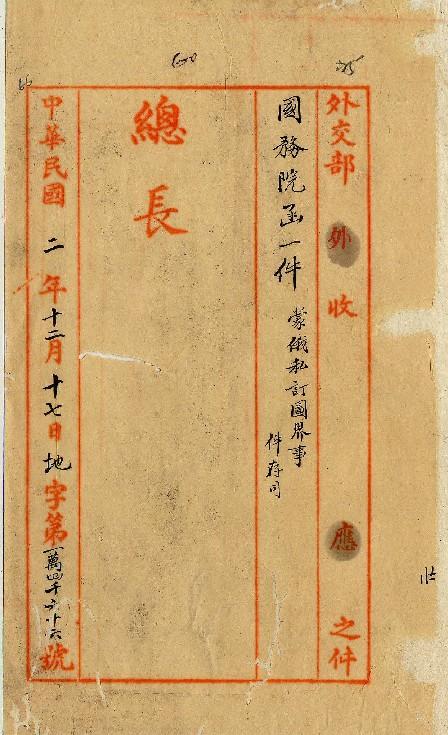 外交部 外 收 應 之件
國務院函一件 蒙俄私訂國界事
件存司
總長
中華民國二年十二月十七日地字第一萬四千六十六號